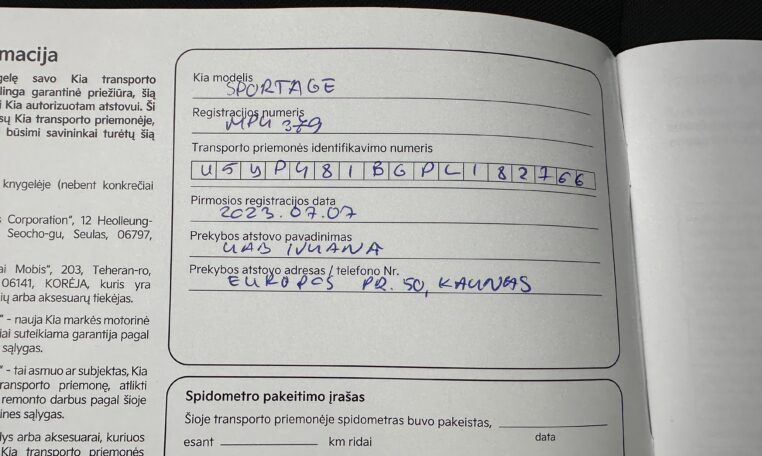 macija
gelę savo Kia transporto
linga garantinė priežiūra, šią
į Kia autorizuotam atstovui. Ši
sų Kia transporto priemonėje,
būsimi savininkai turėtų šią
knygelėje (nebent konkrečiai
s Corporation", 12 Heolleung-
Seocho-gu, Seulas, 06797,
ai Mobis", 203, Teheran-ro,
06141, KORĖJA, kuris yra
ių arba aksesuarų tiekėjas.
" - nauja Kia markės motorinė
iai suteikiama garantija pagal
sąlygas.
" - tai asmuo ar subjektas, Kia
ransporto priemonę, atlikti
remonto darbus pagal šioje
ines sąlygas.
lys arba aksesuarai, kuriuos
Kia transporto priemonės
Kia modelis
SPORTAGE
Registracijos numeris
MPU 379
Transporto priemonės identifikavimo numeris
U5YPU81BGPL182766
Pirmosios registracijos data
2023.07.07
Prekybos atstovo pavadinimas
UAB
Prekybos atstovo adresas / telefono Nr.
EUROPOS PR. 50, KAUNAS
Spidometro pakeitimo įrašas
Šioje transporto priemonėje spidometras buvo pakeistas,
esant km ridai data